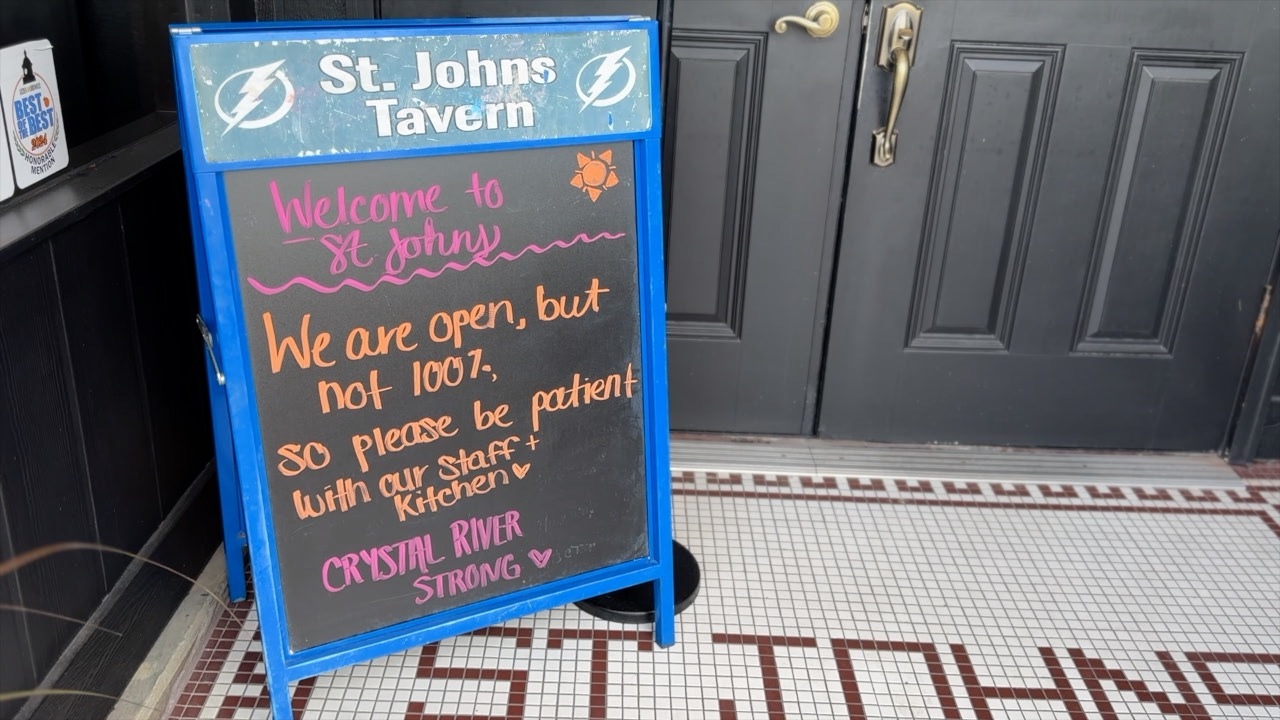 BEST
OF THE
BEST
2024
HONORABLE
MENTION
St. Johns
Tavern
Welcome to
St Johns
We are open, but
not 100%,
so please be patient
with our staff +
Kitchen ♡
CRYSTAL RIVER
STRONG ♡
ST. JOHNS